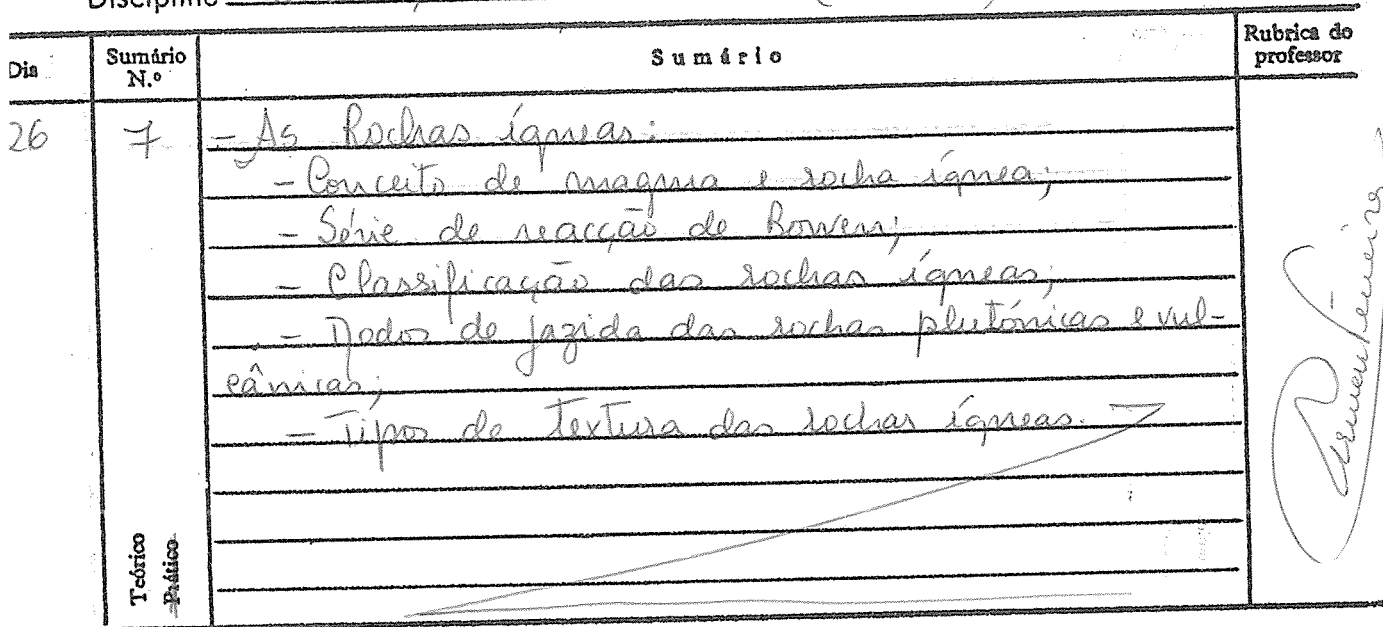 Disciplina
Dia
Sumário N.º
Sumário
Rubrica do professor
26
7
- As Rochas ígneas:
- Conceito de magma e rocha ígnea;
- Série de reacção de Bowen;
- Classificação das rochas ígneas;
- Modos de jazida das rochas plutónicas e vul-
cânicas;
- Tipos de textura das rochas ígneas.
Teórico
Prático